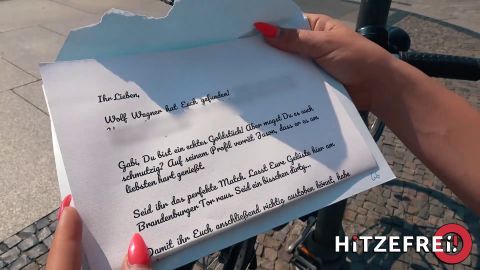 Ihr Lieben,
Wolf Wagner hat Euch gefunden!
Gabi, Du bist ein echtes Goldstück! Aber magst Du es auch
schmutzig? Auf seinem Profil verrät Jason, dass er es am
liebsten hart genießt.
Seid ihr das perfekte Match. Lasst Eure Gelüste hier am
Brandenburger Tor raus. Seid ein bisschen dirty...
Damit ihr Euch anschließend richtig austoben könnt, habe
HiTZEFREi